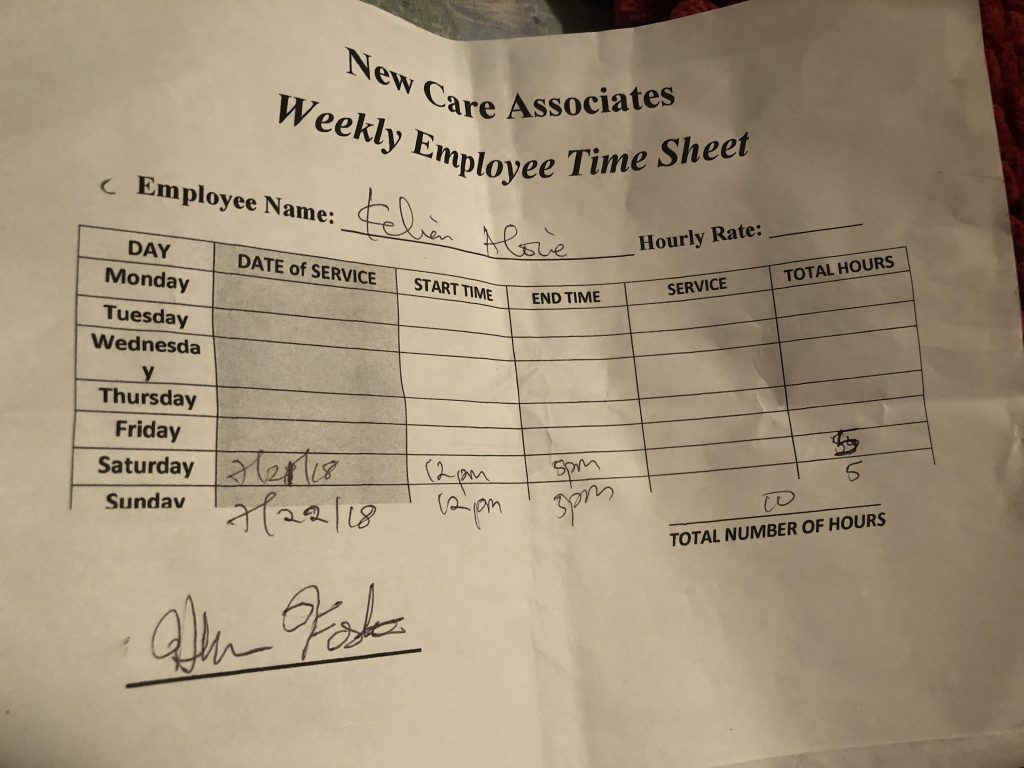 New Care Associates
Weekly Employee Time Sheet
Employee Name: Hourly Rate:
DAY DATE of SERVICE START TIME END TIME SERVICE TOTAL HOURS
Monday
Tuesday
Wednesda
y
Thursday
Friday
Saturday 7/21/18 12pm 5pm 5
Sunday 7/22/18 12pm 5
10
TOTAL NUMBER OF HOURS